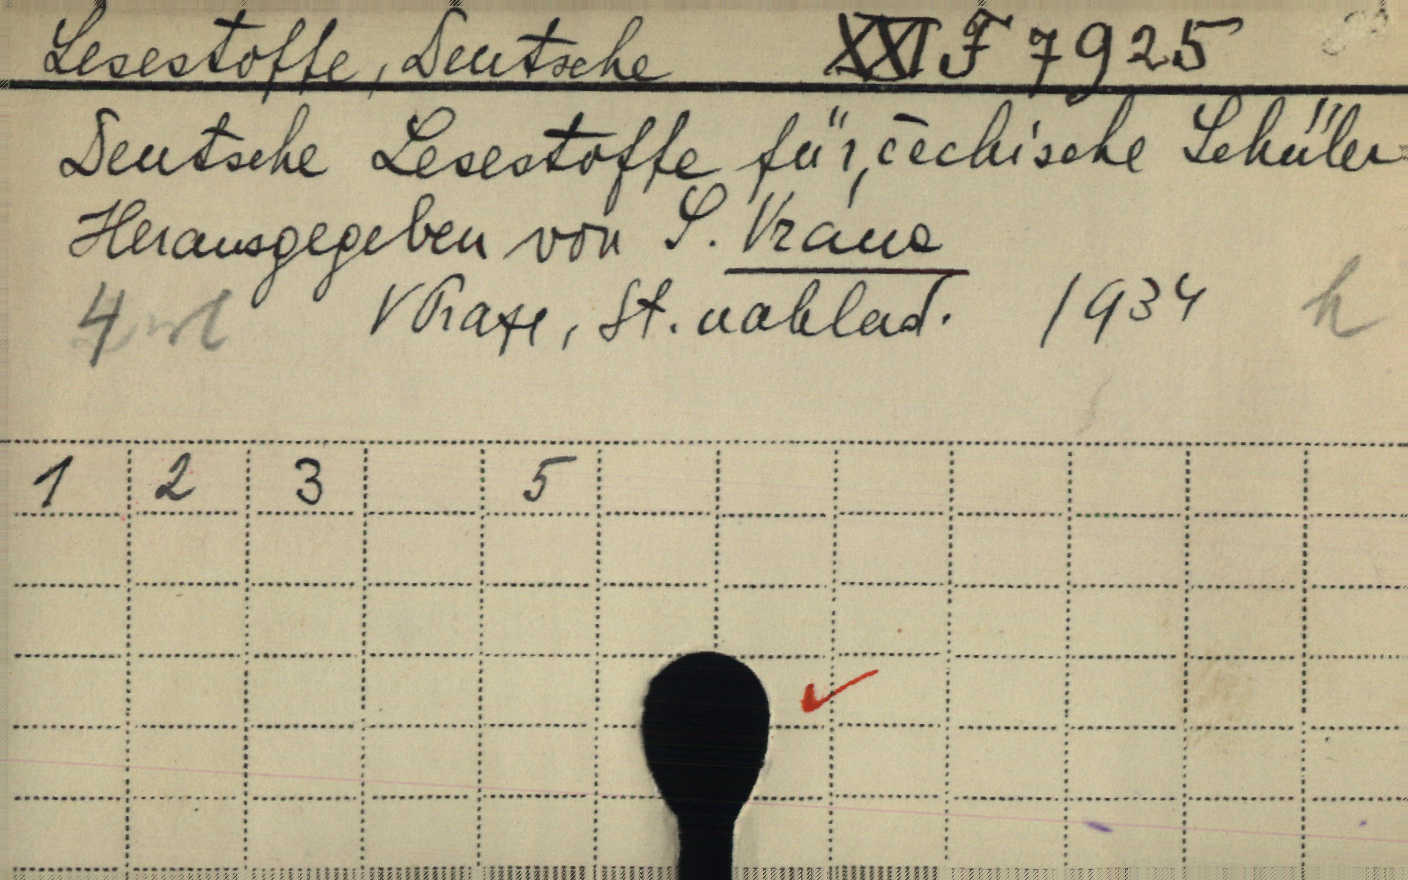 Lesestoffe, Deutsche XXI F 7925
Deutsche Lesestoffe für čechische Schüler
Herausgegeben von S. Vrana
4 V Praze, St. naklad. 1934 h
1 2 3 5